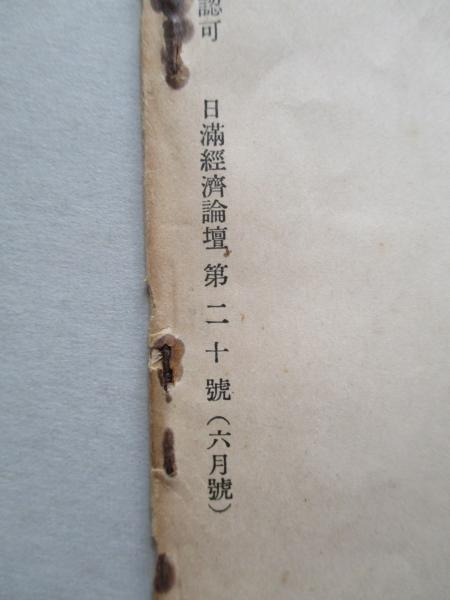 認可 日滿經濟論壇 第二十號(六月號)